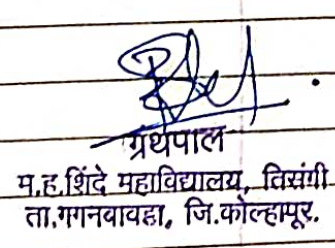 ग्रंथपाल
म.ह.शिंदे महाविद्यालय, तिसंगी
ता.गगनबावडा, जि.कोल्हापूर.